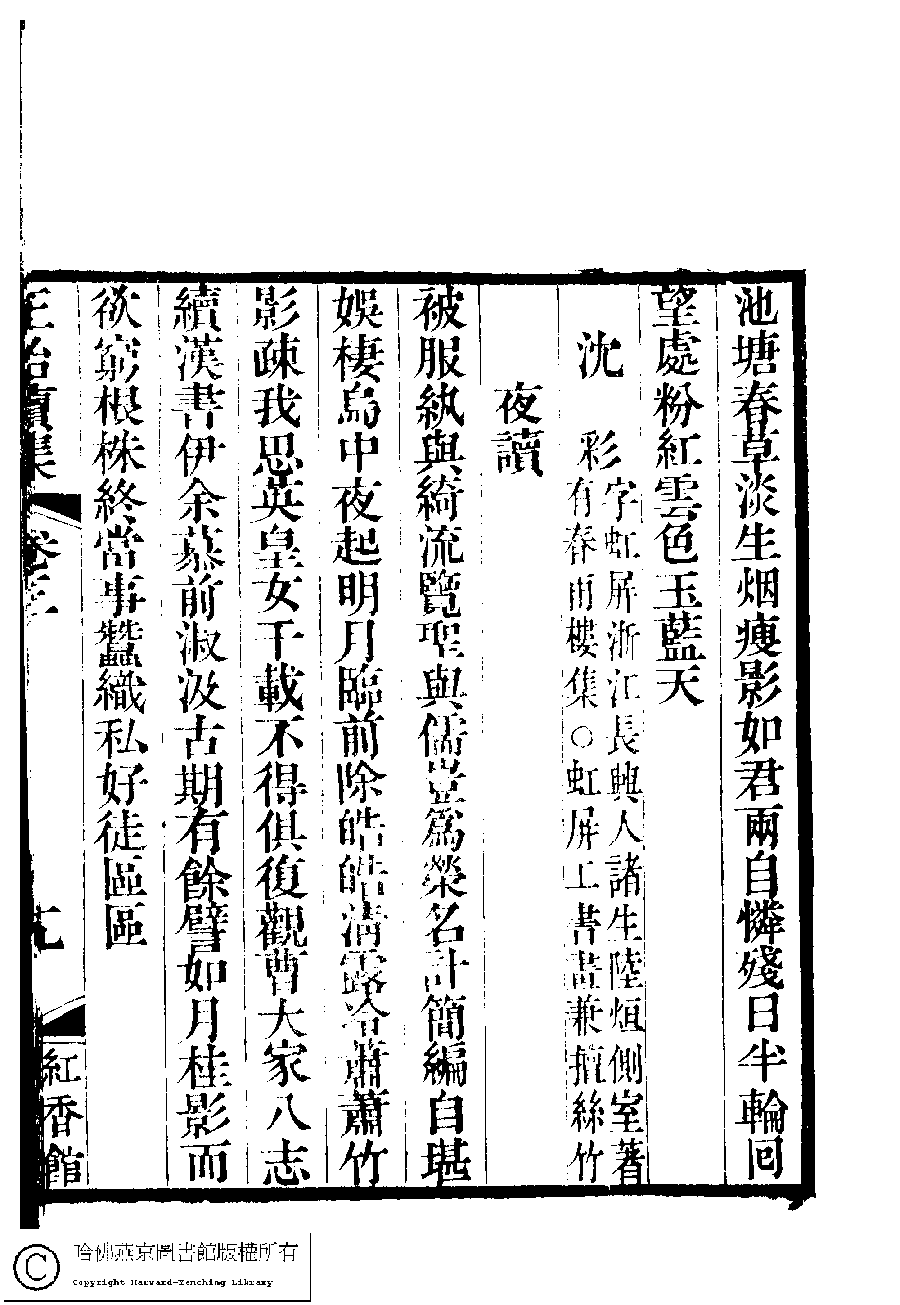 池塘春草淡生烟瘦影如君兩自憐殘日半輪回
望處粉紅雲色玉藍天
沈彩
字虹屏浙江長興人諸生陸烜側室著
有春雨樓集○虹屏工書畫兼擅絲竹
夜讀
被服紈與綺流覽聖與儒豈爲榮名計簡編自堪
娛棲烏中夜起明月臨前除皓皓清露冷蕭蕭竹
影疎我思英皇女千載不得俱復觀曹大家八志
續漢書伊余慕前淑汲古期有餘譬如月桂影而
欲窮根株終當事蠶織私好徒區區
卷三
紅香館
哈佛燕京圖書館版權所有
Copyright Harvard-Yenching Library